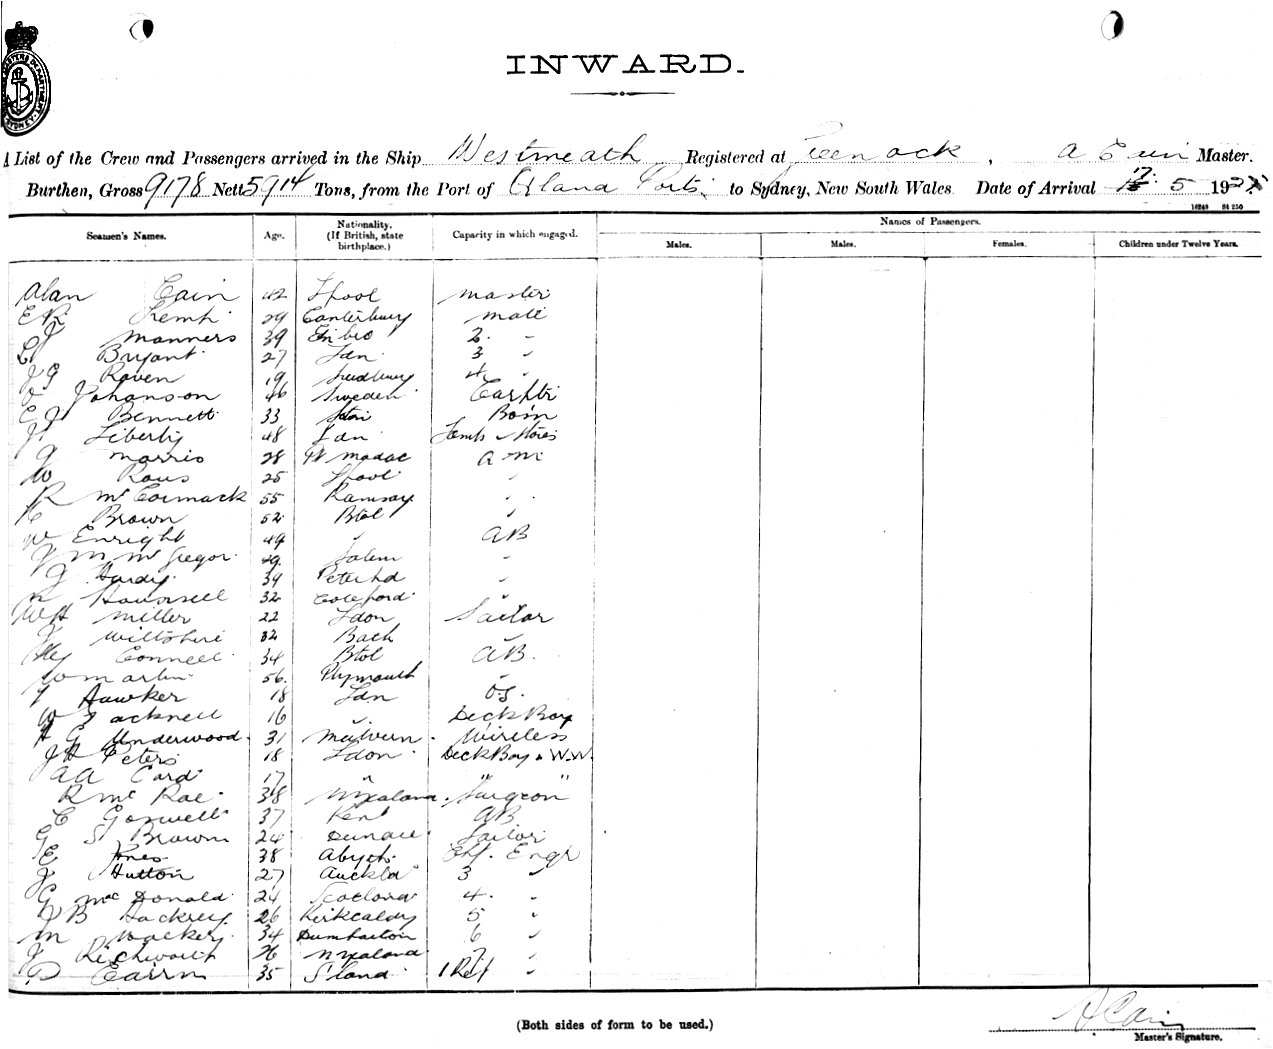 INWARD.
A List of the Crew and Passengers arrived in the Ship Westmeath Registered at Greenock, A Cain Master.
Burthen, Gross 9178 Nett 5914 Tons, from the Port of Ports to Sydney, New South Wales Date of Arrival 5 192
16249 84 250
Seamen's Names. Age. Nationality. (If British, state birthplace.) Capacity in which engaged. Names of Passengers.
Males. Males. Females. Children under Twelve Years.
Alan Cain 42 Lpool Master
E R Kemp 29 Canterbury Mate
J Manners 39 2 "
Bryant 27 Ldn 3 "
J G Raven 19 Sudbury 4 "
Johanson 46 Sweden
E J Bennett 33 Bosn
J Liberty 48 Ldn Lamps & Stores
G Morris 28 P Madoc A M
W Rous 25 Lpool "
R McCormack 55 Ramsay "
Brown 52 Btol "
W Enright 49 " AB
J M McGregor 49 Salem "
J Hardy 39 Peterhd "
Hounsell 32 Coleford "
W H Miller 22 Ldon Sailor
J Wiltshire 32 Bach "
Hy Connell 34 Btol AB.
W Martin 56 Plymouth "
J Hawker 18 Ldn O.S.
W Jacknell 16 " Deck Boy
H G Underwood 31 Malvern Wireless
J H Peters 18 Ldon Deck Boy & W.W.
A A Card 17 " " "
R McRae 38 N Zealand Surgeon
C Goswell 37 Kent AB
G S Brown 24 Sailor
E Jones 38 Abyth Chf. Engr
J Hutton 27 Auckld 3 "
G McDonald 24 Scotland 4 "
W B Hackrey 26 Kirkcaldy 5 "
M Walker 34 Dumbarton 6 "
J Retchworth 26 N Zealand 7 "
D Cairn 35 S'land 1 Ref "
(Both sides of form to be used.)
A Cain
Master's Signature.